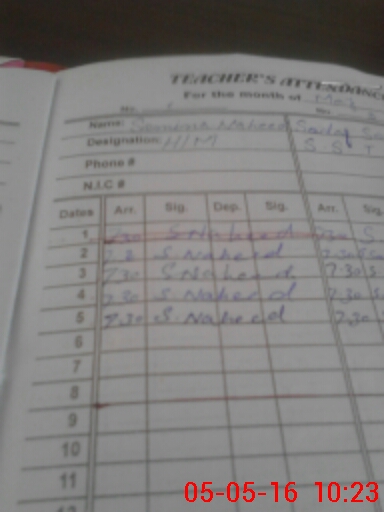 TEACHER'S ATTENDANCE
For the month of May
No. 1 No.
Name: Naheed
Designation: H/M S. S. T
Phone #
N.I.C #
Dates Arr. Sig. Dep. Sig. Arr. Sig.
1 7:30 S. Naheed 7:30 S
2 S. Naheed 7:30
3 7:30 S. Naheed 7:30 S
4 7:30 S. Naheed 7:30 S
5 7:30 S. Naheed 7:30
6
7
8
9
10
11
12
05-05-16 10:23